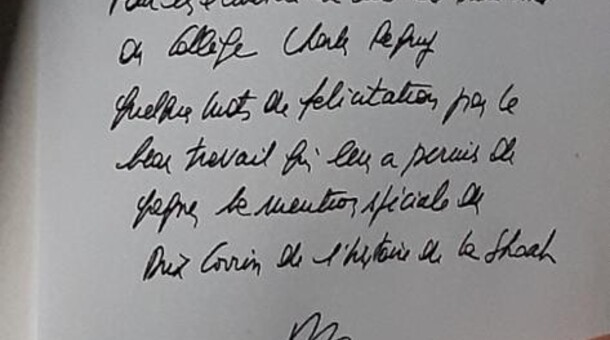 Pour les
du Collège Charles Péguy
quelques mots de félicitation pour le
beau travail qui leur a permis de
gagner la mention spéciale du
Prix Corrin de l'histoire de la Shoah